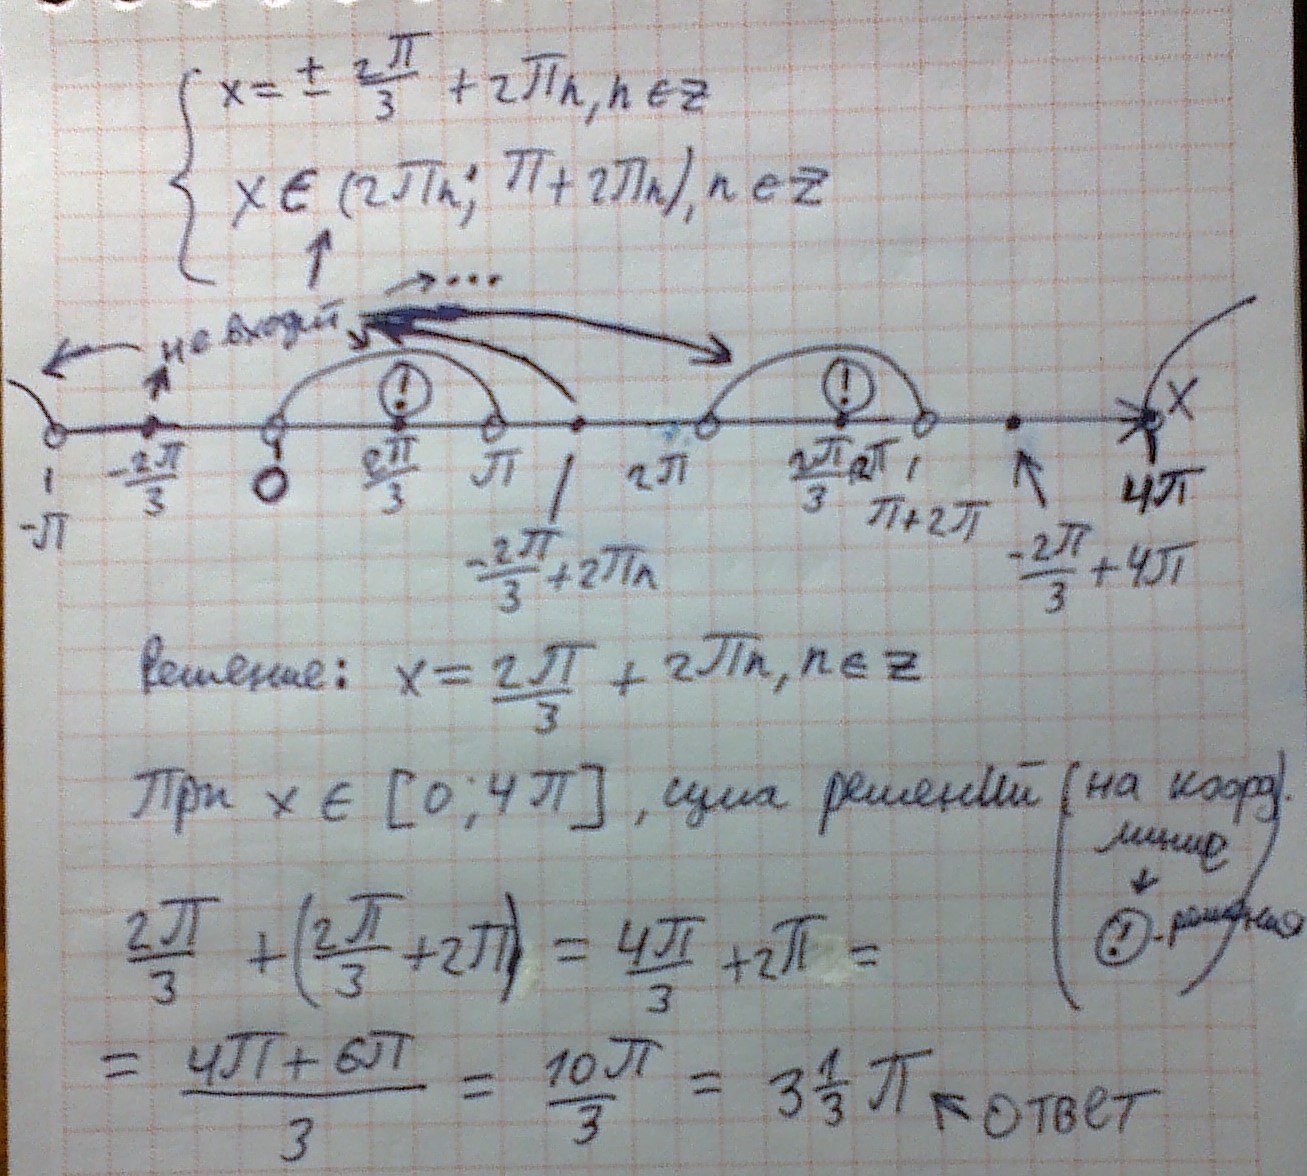 x = ± 2π/3 + 2πn, n ∈ Z
x ∈ (2πn; π + 2πn), n ∈ Z
→ ...
не входят
! !
x
-π -2π/3 0 2π/3 π 2π 2π/3 2π π+2π 4π
-2π/3 + 2πn -2π/3 + 4π
Решение: x = 2π/3 + 2πn, n ∈ Z
При x ∈ [0; 4π], сума решений (на коорд.
линие
! - решения)
2π/3 + (2π/3 + 2π) = 4π/3 + 2π =
= (4π + 6π)/3 = 10π/3 = 3 1/3 π ↖ ответ